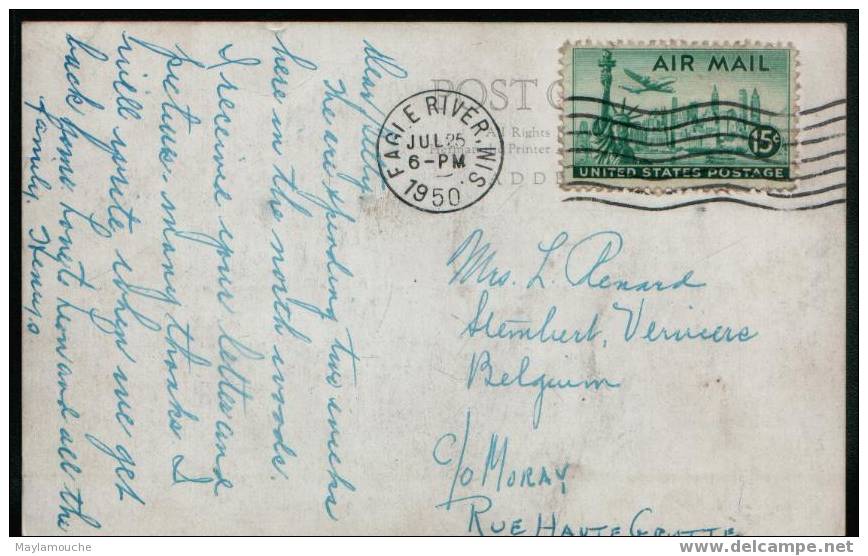 Dear
We are spending two weeks
here in the north woods.
I receive your letter and
picture. many thanks I
will write when we get
back home. love to Leon and all the
family. Henry.
POST
All Rights
Printer
ADD
EAGLE RIVER, WIS.
JUL 25
6-PM
1950
AIR MAIL
15¢
UNITED STATES POSTAGE
Mrs. L. Renard
Stembert, Verviers
Belgium
c/o MORAY
RUE HAUTE GROTTE
Maylamouche
www.delcampe.net